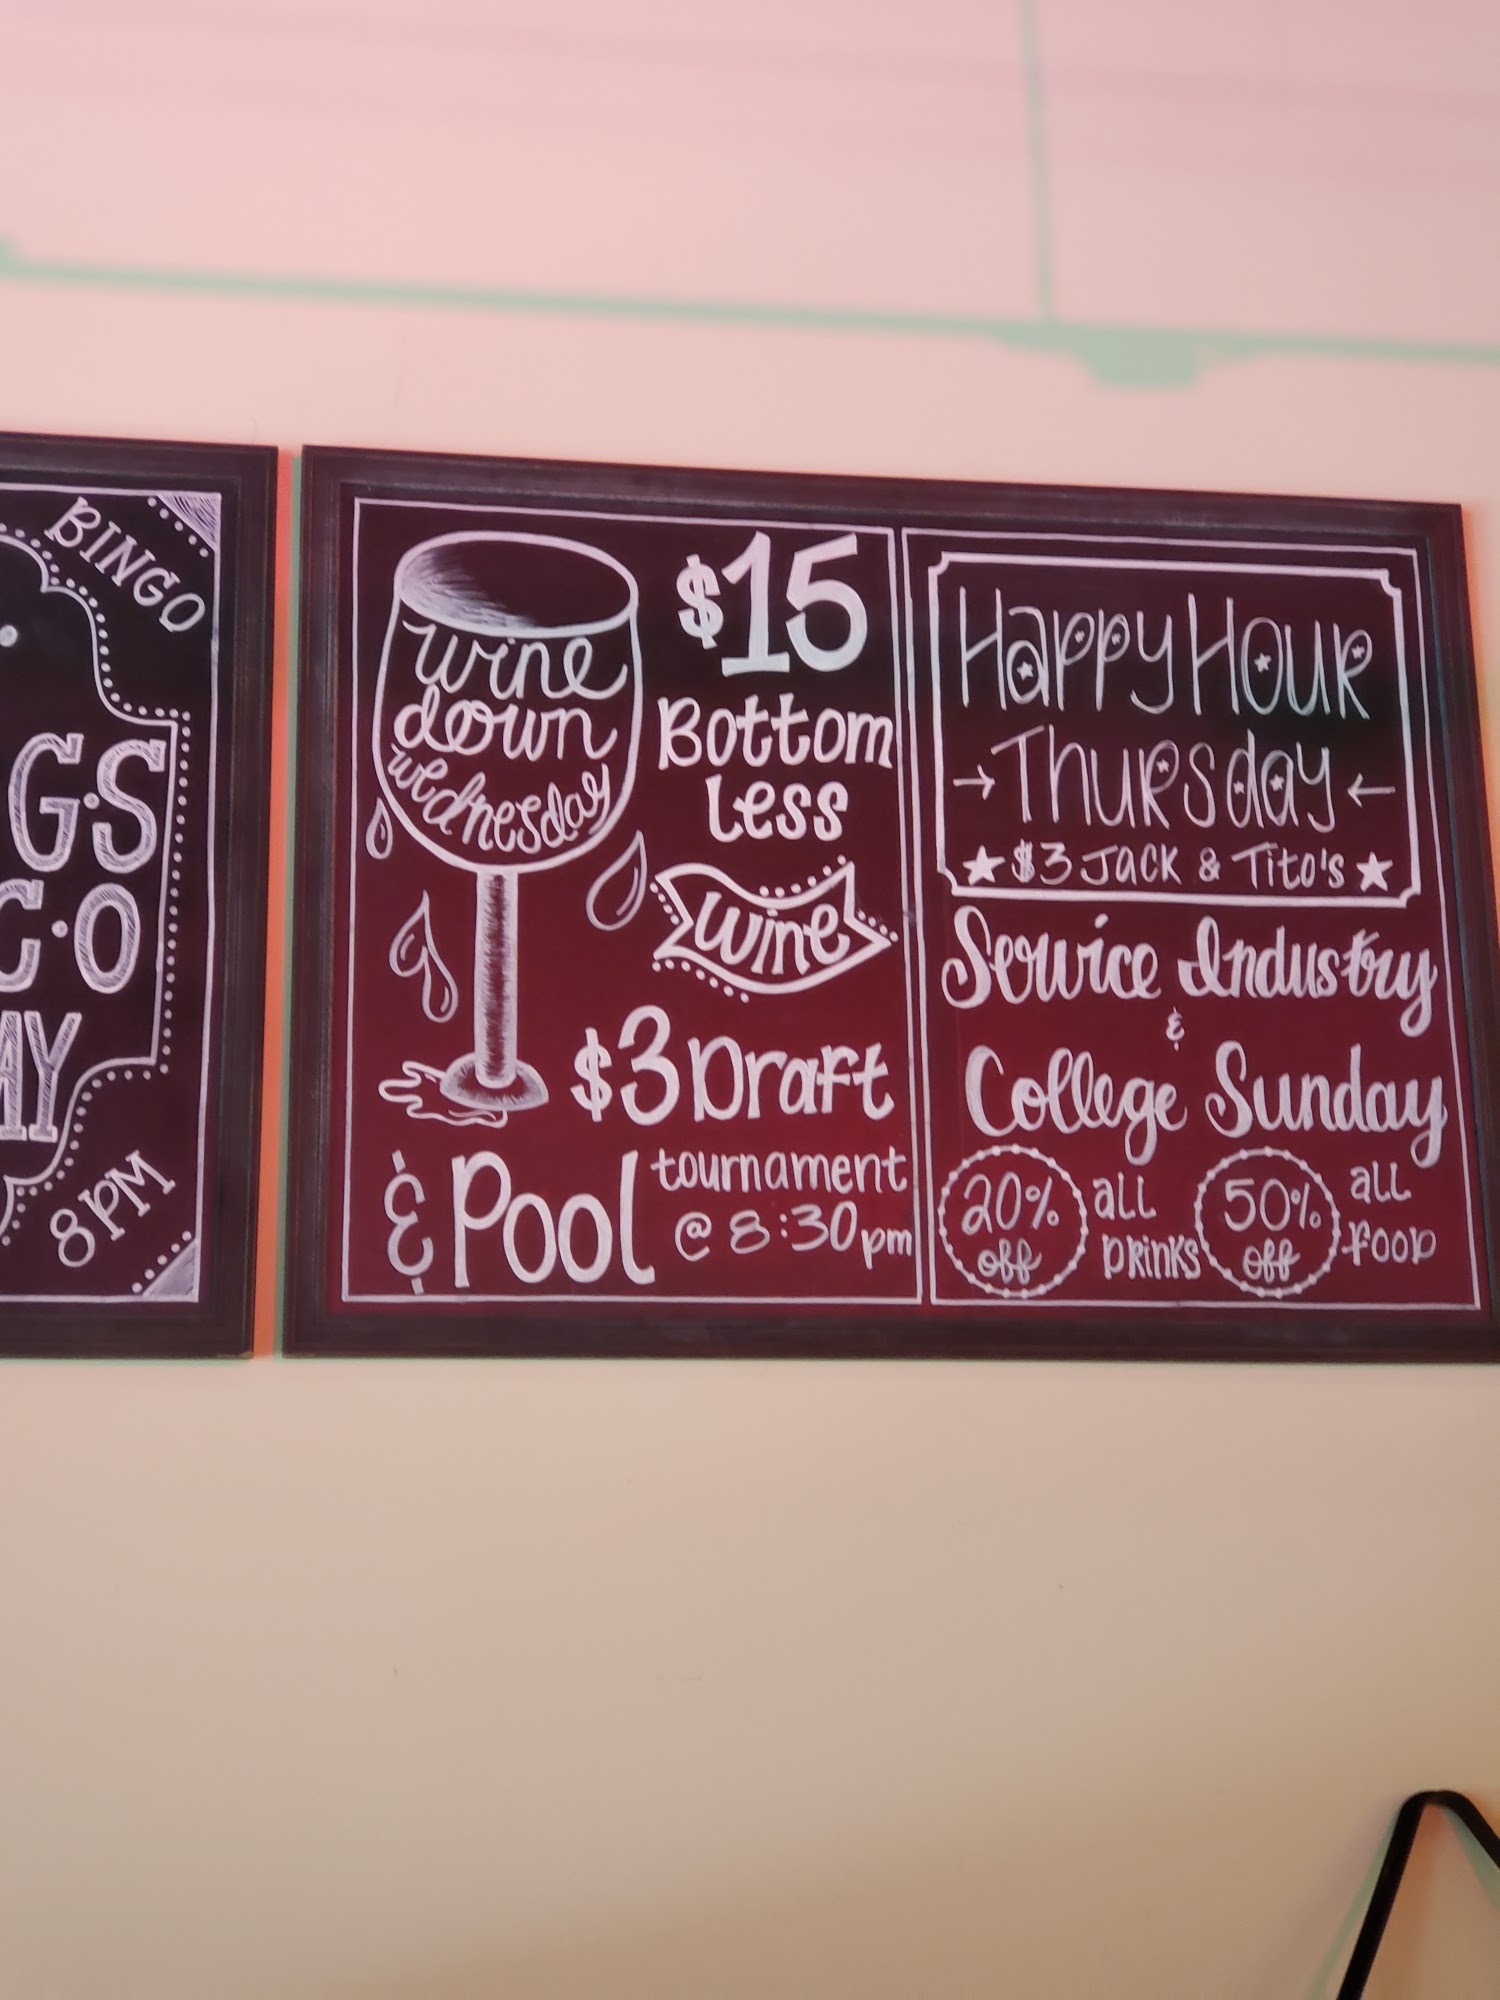 BINGO
8PM
wine
down
wednesday
$15
Bottom
less
wine
$3 Draft
& Pool tournament
@ 8:30pm
Happy Hour
Thursday
$3 Jack & Tito's
Service Industry
&
College Sunday
20% off all DRINKS
50% off all FOOD